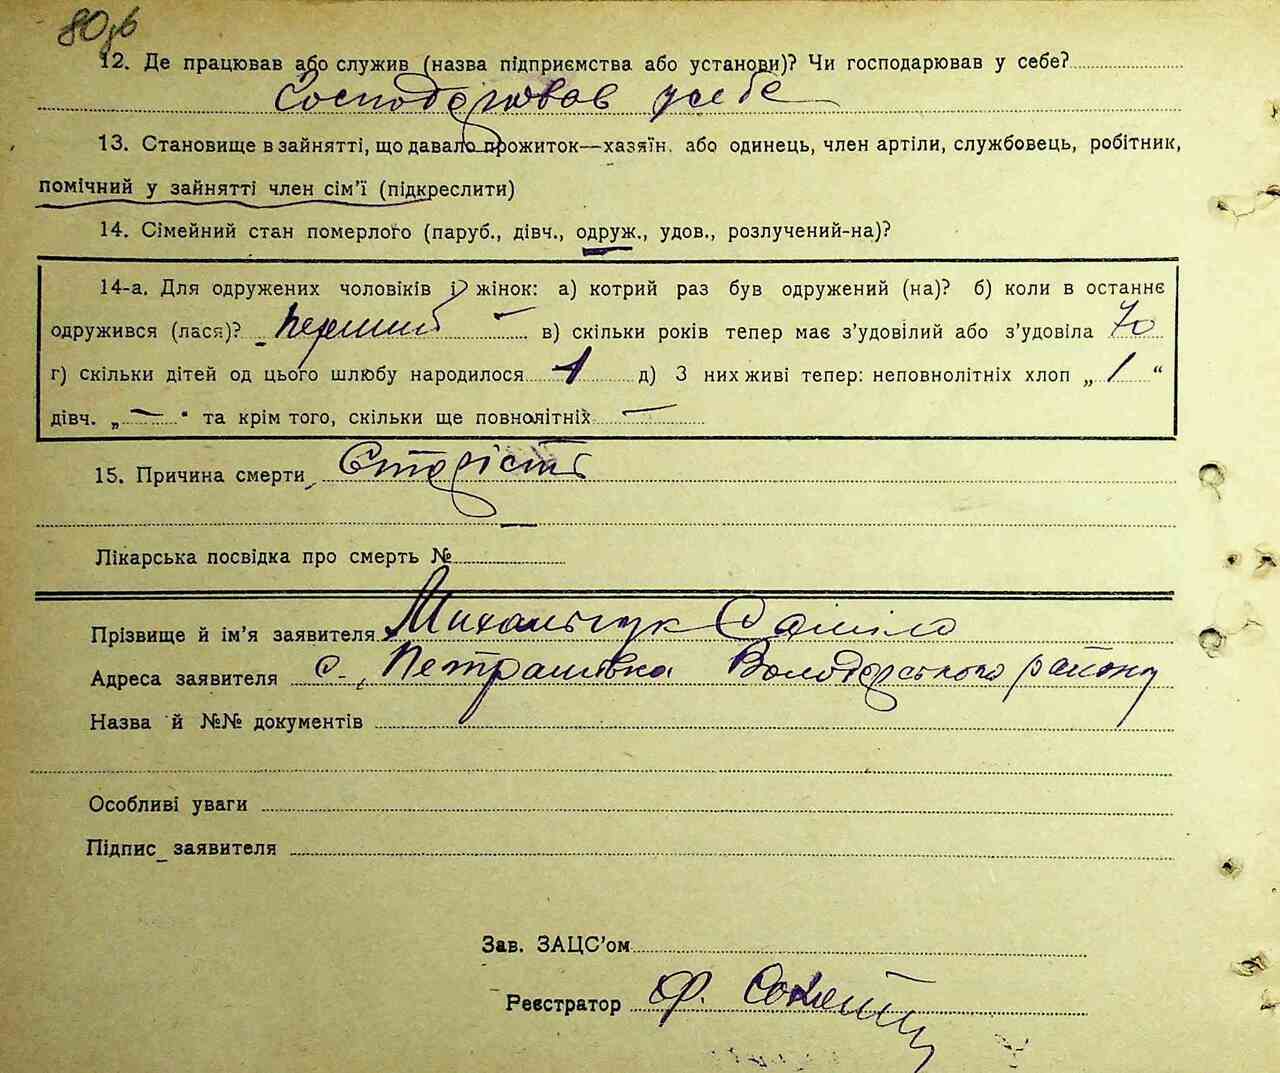 80зв
12. Де працював або служив (назва підприємства або установи)? Чи господарював у себе?
Господарював у себе
13. Становище в зайнятті, що давало прожиток—хазяїн. або одинець, член артіли, службовець, робітник,
помічний у зайнятті член сім'ї (підкреслити)
14. Сімейний стан померлого (паруб., дівч., одруж., удов., розлучений-на)?
14-а. Для одружених чоловіків і жінок: а) котрий раз був одружений (на)? б) коли в останнє
одружився (лася)? Перший — в) скільки років тепер має з'удовілий або з'удовіла 70
г) скільки дітей од цього шлюбу народилося 1 д) З них живі тепер: неповнолітніх хлоп „ 1 “
дівч. „ — " та крім того, скільки ще повнолітніх —
15. Причина смерти Старість
—
Лікарська посвідка про смерть №
Прізвище й ім'я заявителя Михальчук Саміло
Адреса заявителя с. Петрашівка Володарського району
Назва й №№ документів
Особливі уваги
Підпис заявителя
Зав. ЗАЦС'ом
Реєстратор Ф.